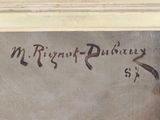 M. Rignot-Dubaux
87